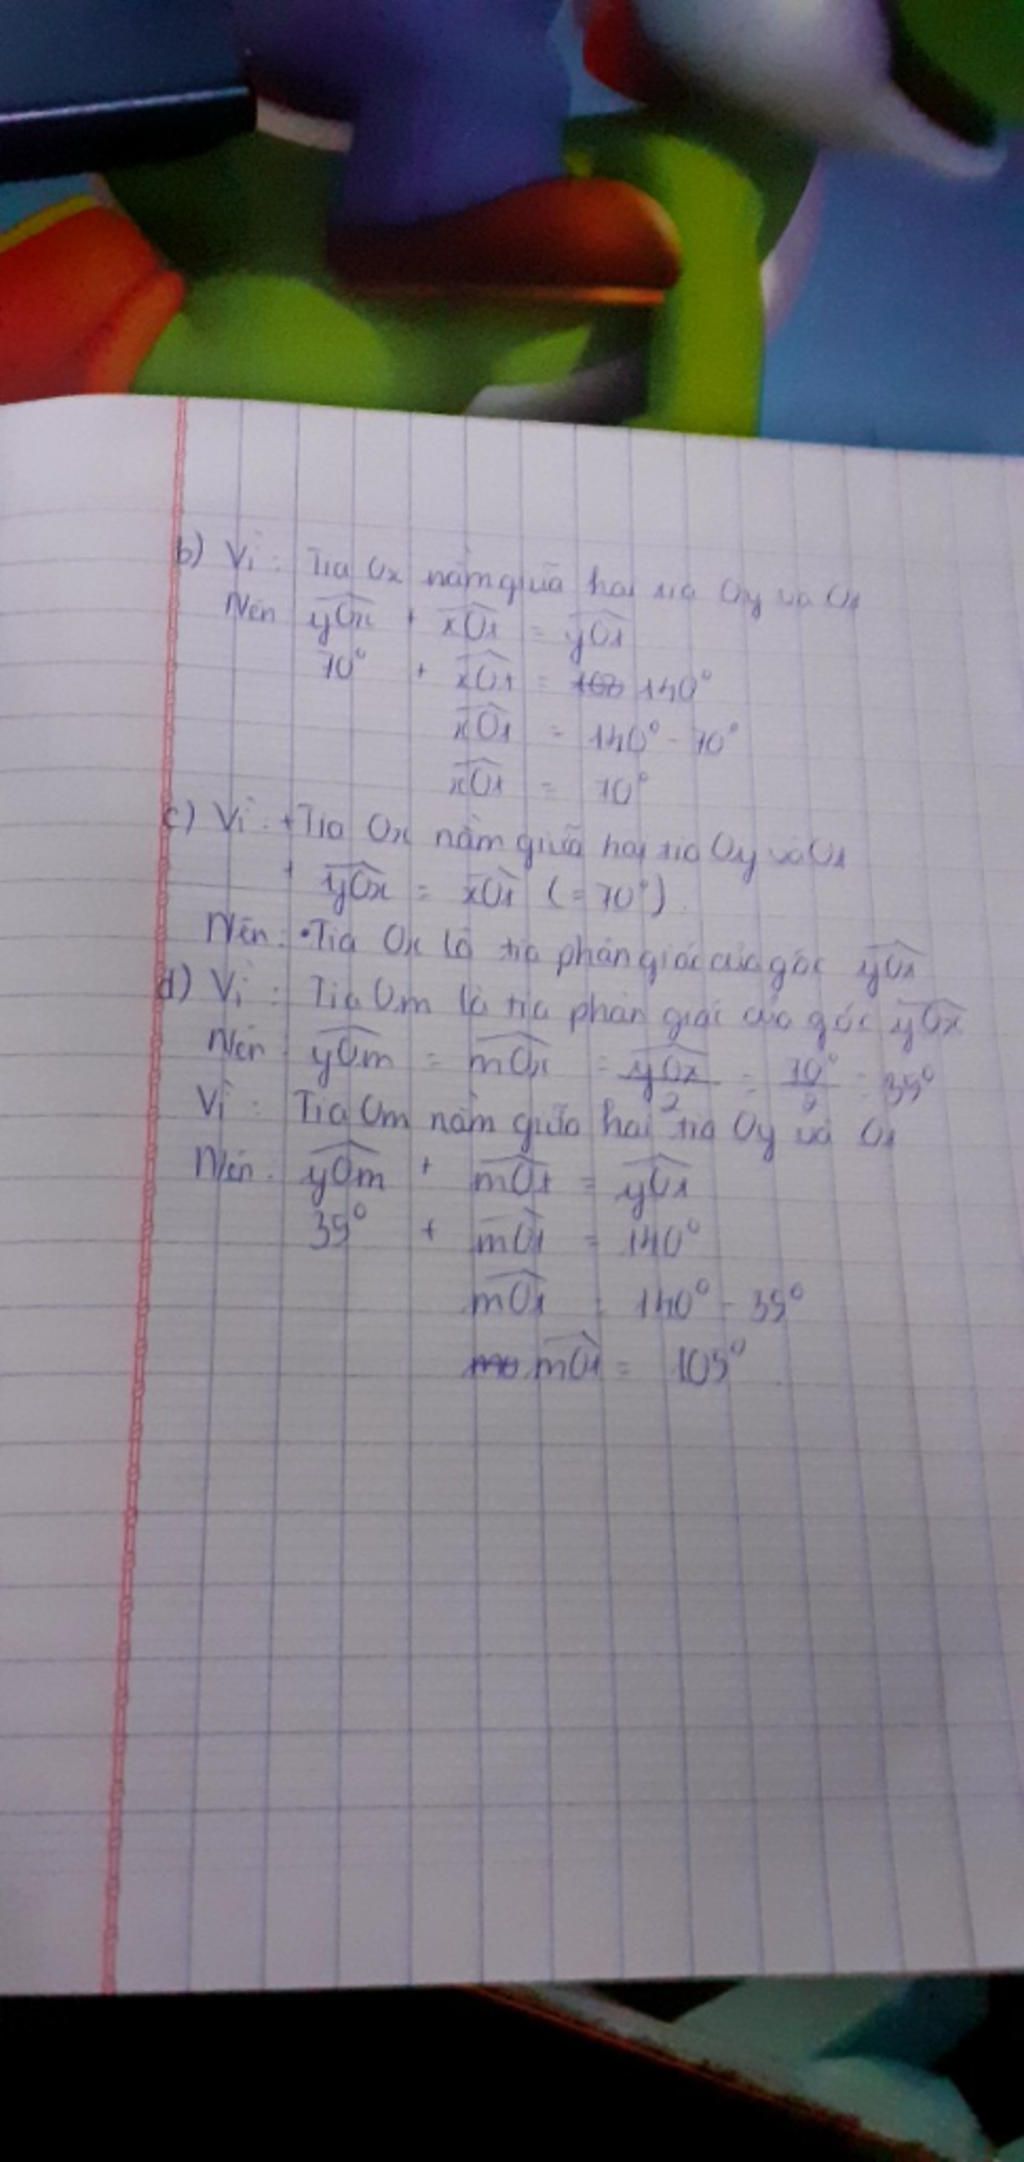 b) Vì : Tia Ox nằm giữa hai tia Oy và Ot
Nên yOx + xOt = yOt
70° + xOt = 140°
xOt = 140° - 70°
xOt = 70°
c) Vì : + Tia Ox nằm giữa hai tia Oy và Ot
+ yOx = xOt (= 70°)
Nên : • Tia Ox là tia phân giác của góc yOt
d) Vì : Tia Om là tia phân giác của góc yOx
Nên yOm = mOx = yOx/2 = 70°/2 = 35°
Vì : Tia Om nằm giữa hai tia Oy và Ot
Nên : yOm + mOt = yOt
35° + mOt = 140°
mOt = 140° - 35°
mOt = 105°